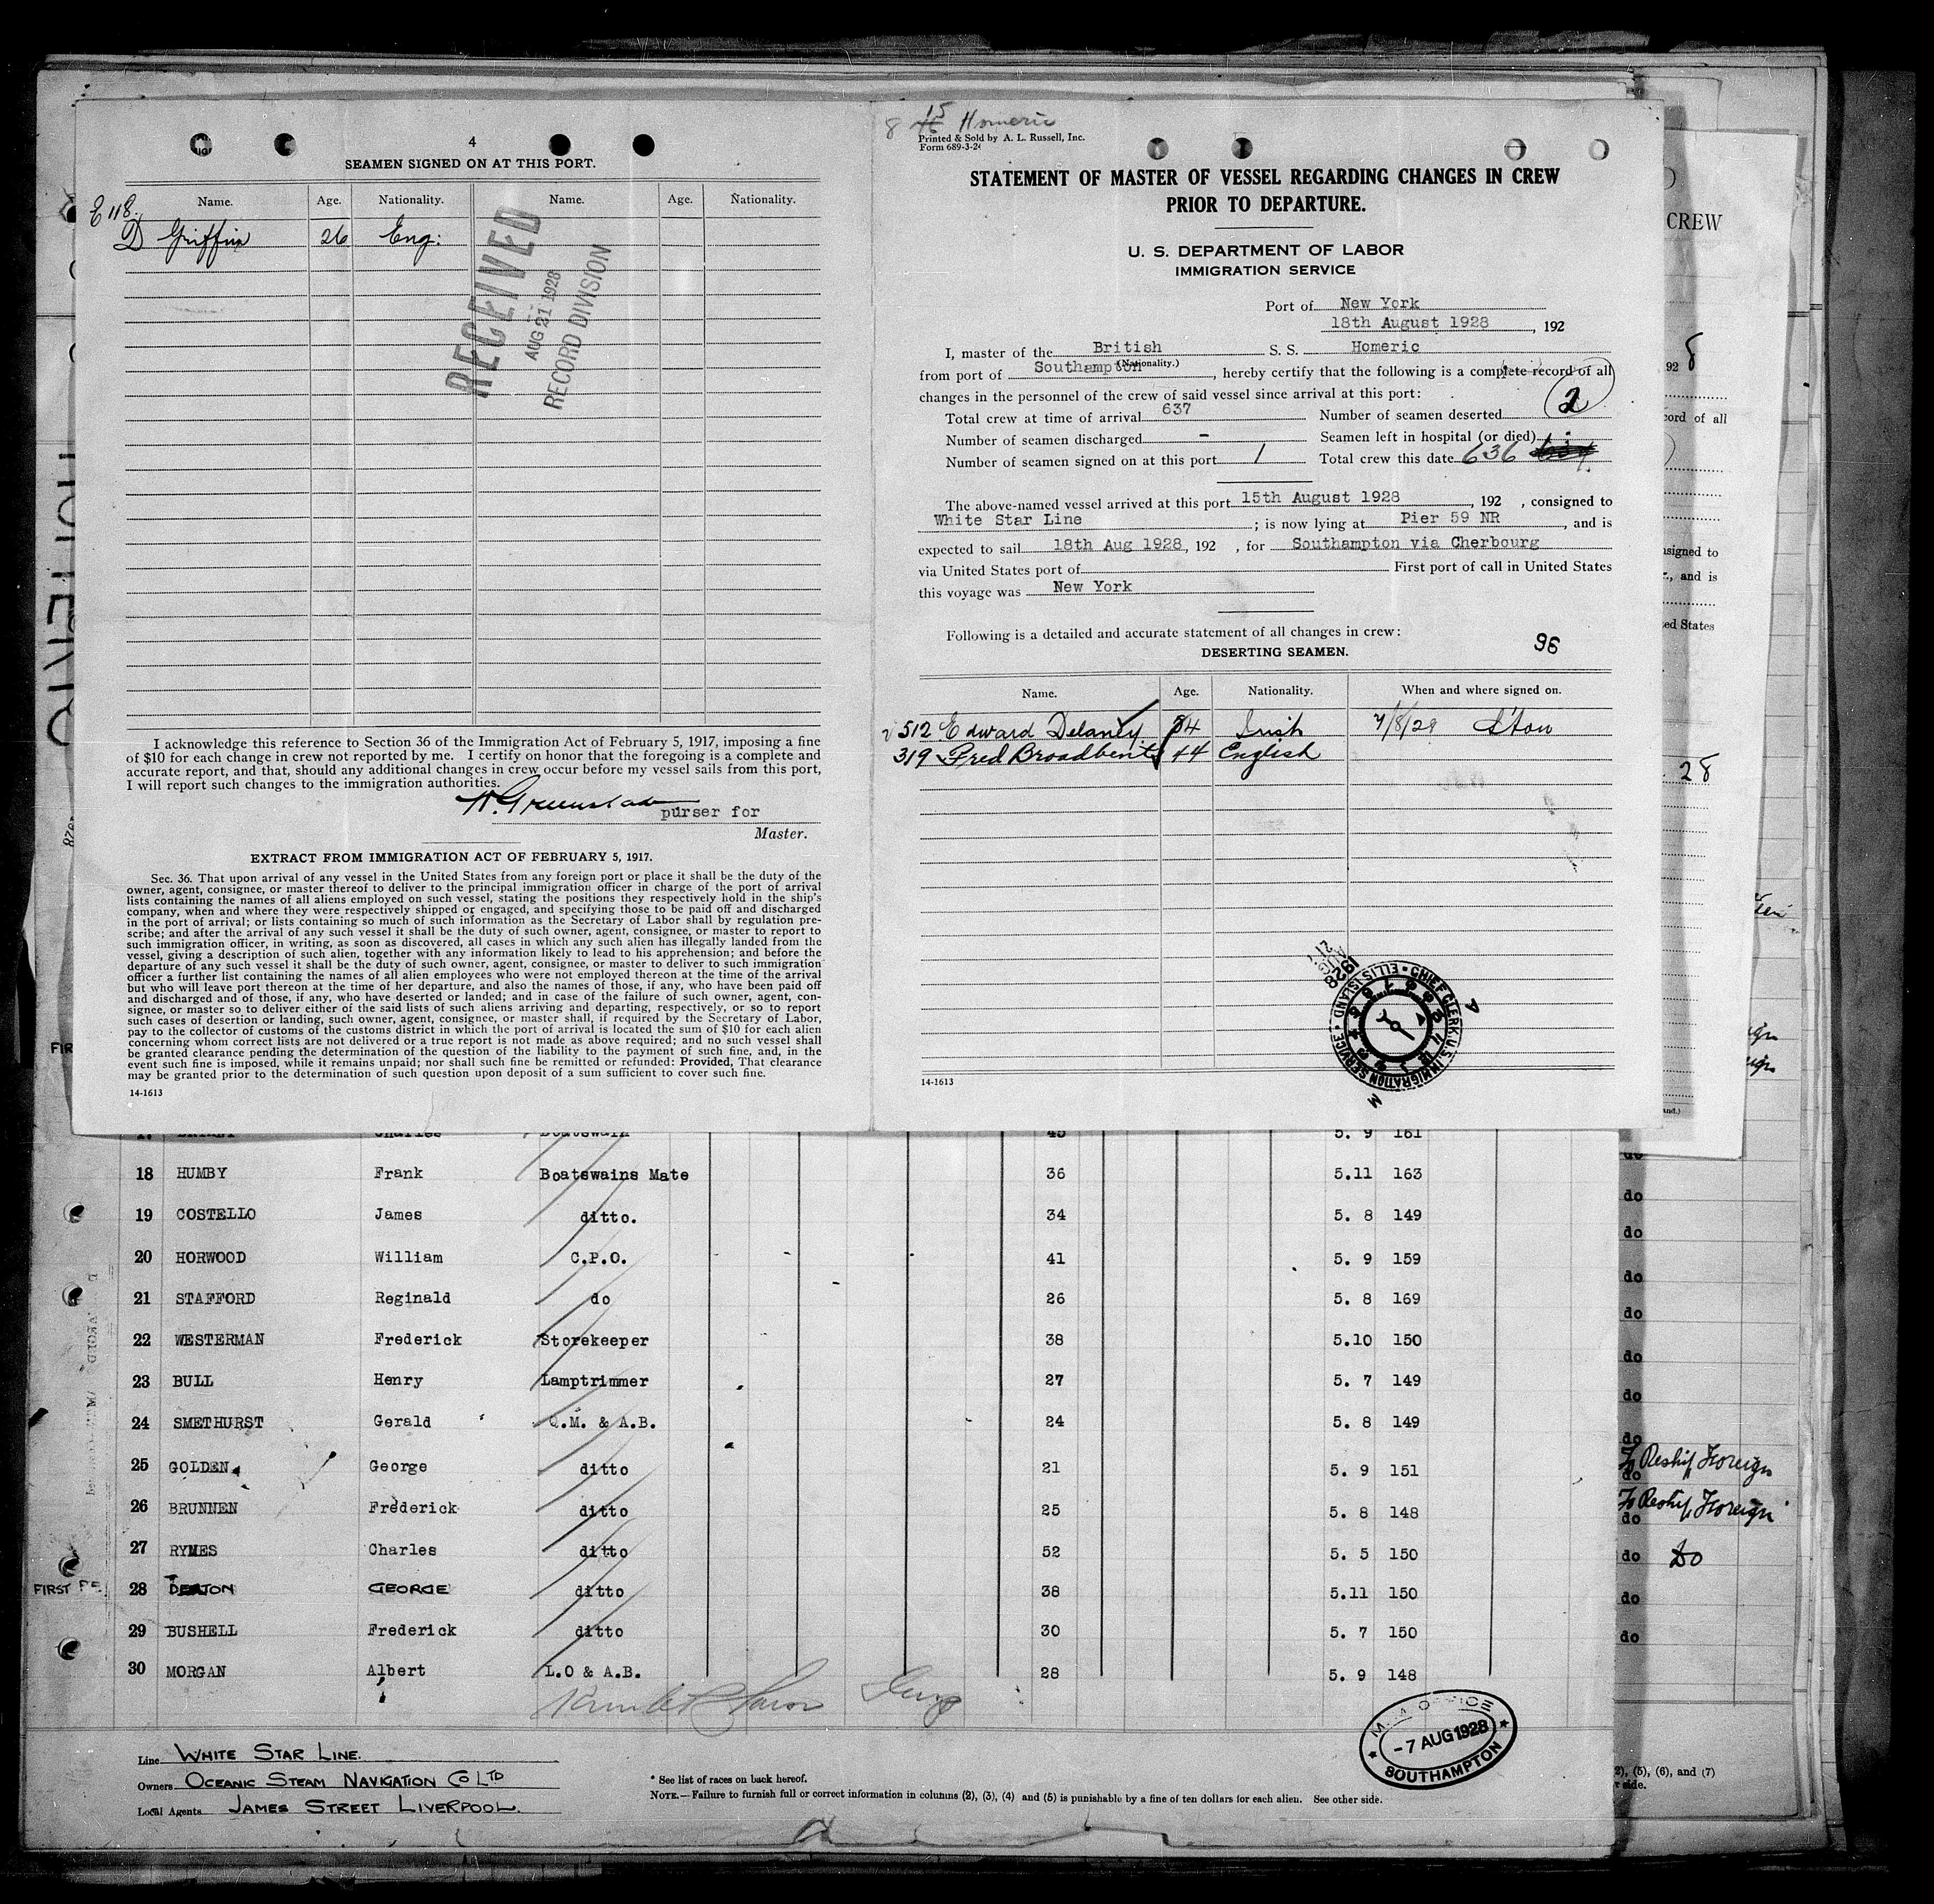 4
SEAMEN SIGNED ON AT THIS PORT.
Name. Age. Nationality. Name. Age. Nationality.
E 118.
D Griffin 26 Eng:
RECEIVED
AUG 21 1928
RECORD DIVISION
I acknowledge this reference to Section 36 of the Immigration Act of February 5, 1917, imposing a fine
of $10 for each change in crew not reported by me. I certify on honor that the foregoing is a complete and
accurate report, and that, should any additional changes in crew occur before my vessel sails from this port,
I will report such changes to the immigration authorities.
purser for
Master.
EXTRACT FROM IMMIGRATION ACT OF FEBRUARY 5, 1917.
Sec. 36. That upon arrival of any vessel in the United States from any foreign port or place it shall be the duty of the
owner, agent, consignee, or master thereof to deliver to the principal immigration officer in charge of the port of arrival
lists containing the names of all aliens employed on such vessel, stating the positions they respectively hold in the ship's
company, when and where they were respectively shipped or engaged, and specifying those to be paid off and discharged
in the port of arrival; or lists containing so much of such information as the Secretary of Labor shall by regulation pre-
scribe; and after the arrival of any such vessel it shall be the duty of such owner, agent, consignee, or master to report to
such immigration officer, in writing, as soon as discovered, all cases in which any such alien has illegally landed from the
vessel, giving a description of such alien, together with any information likely to lead to his apprehension; and before the
departure of any such vessel it shall be the duty of such owner, agent, consignee, or master to deliver to such immigration
officer a further list containing the names of all alien employees who were not employed thereon at the time of the arrival
but who will leave port thereon at the time of her departure, and also the names of those, if any, who have been paid off
and discharged and of those, if any, who have deserted or landed; and in case of the failure of such owner, agent, con-
signee, or master so to deliver either of the said lists of such aliens arriving and departing, respectively, or so to report
such cases of desertion or landing, such owner, agent, consignee, or master shall, if required by the Secretary of Labor,
pay to the collector of customs of the customs district in which the port of arrival is located the sum of $10 for each alien
concerning whom correct lists are not delivered or a true report is not made as above required; and no such vessel shall
be granted clearance pending the determination of the question of the liability to the payment of such fine, and, in the
event such fine is imposed, while it remains unpaid; nor shall such fine be remitted or refunded: Provided, That clearance
may be granted prior to the determination of such question upon deposit of a sum sufficient to cover such fine.
14-1613
8 15 Homeric
Printed & Sold by A. L. Russell, Inc.
Form 689-3-24
STATEMENT OF MASTER OF VESSEL REGARDING CHANGES IN CREW
PRIOR TO DEPARTURE.
U. S. DEPARTMENT OF LABOR
IMMIGRATION SERVICE
Port of New York
18th August 1928, 192
I, master of the British S. S. Homeric
(Nationality.)
from port of Southampton, hereby certify that the following is a complete record of all
changes in the personnel of the crew of said vessel since arrival at this port:
Total crew at time of arrival 637 Number of seamen deserted 2
Number of seamen discharged - Seamen left in hospital (or died)
Number of seamen signed on at this port 1 Total crew this date 636
The above-named vessel arrived at this port 15th August 1928, 192 , consigned to
White Star Line; is now lying at Pier 59 NR, and is
expected to sail 18th Aug 1928, 192 , for Southampton via Cherbourg
via United States port of First port of call in United States
this voyage was New York
Following is a detailed and accurate statement of all changes in crew:
96
DESERTING SEAMEN.
Name. Age. Nationality. When and where signed on.
512 Edward Delaney 34 Irish 7/8/28 S'ton
319 Fred Broadbent 44 English
1928
CHIEF CLERK U.S. IMMIGRATION SERVICE ELLIS ISLAND
14-1613
CREW
92 8
cord of all
signed to
, and is
ed States
28
and.)
Charles Boatswain 45 5. 9 161
18 HUMBY Frank Boatswains Mate 36 5.11 163
19 COSTELLO James ditto. 34 5. 8 149
20 HORWOOD William C.P.O. 41 5. 9 159
21 STAFFORD Reginald do 26 5. 8 169
22 WESTERMAN Frederick Storekeeper 38 5.10 150
23 BULL Henry Lamptrimmer 27 5. 7 149
24 SMETHURST Gerald Q.M. & A.B. 24 5. 8 149
25 GOLDEN George ditto 21 5. 9 151
26 BRUNNEN Frederick ditto 25 5. 8 148
27 RYMES Charles ditto 52 5. 5 150
28 DEATON GEORGE ditto 38 5.11 150
29 BUSHELL Frederick ditto 30 5. 7 150
30 MORGAN Albert L.O & A.B. 28 5. 9 148
FIRST PE
do
do
do
do
do
do
do
do To Reship Foreign
do To Reship Foreign
do Do
do
do
Line WHITE STAR LINE.
Owners OCEANIC STEAM NAVIGATION CO LTD
Local Agents JAMES STREET LIVERPOOL.
* See list of races on back hereof.
NOTE.—Failure to furnish full or correct information in columns (2), (3), (4) and (5) is punishable by a fine of ten dollars for each alien. See other side.
OFFICE
-7 AUG 1928
SOUTHAMPTON
2), (5), (6), and (7)
r side.